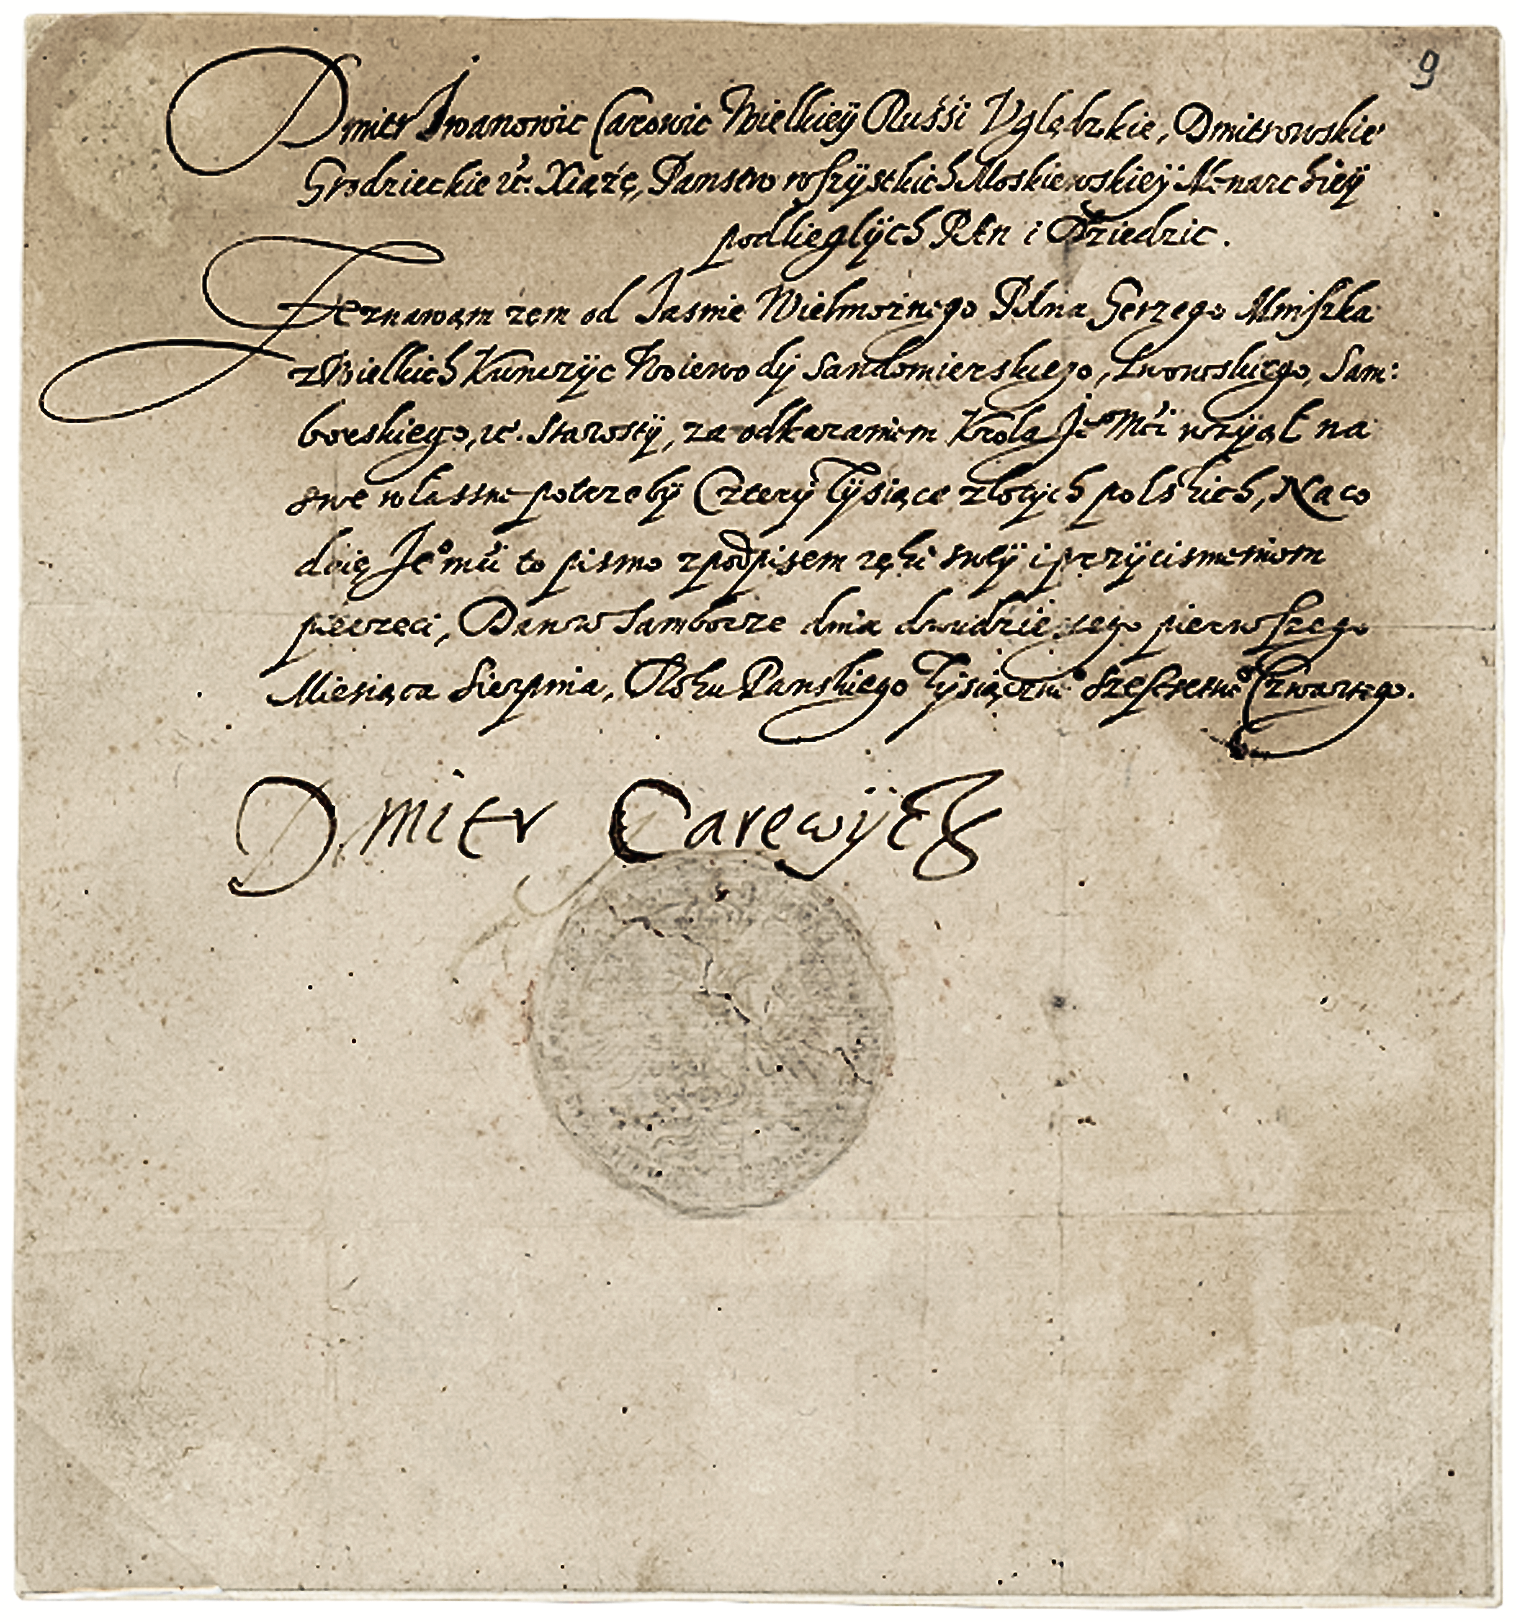 9
Dmitr Iwanowic Carowic Wielkiey Russi Vględzkie, Dmitrowskie
Grodzieckie etc. Xiążę, Panstw wszystkich Moskiewskiey Monarchiey
podlieglych Pan i Dziedzic.
Zeznawam zem od Jasnie Wielmożnego Pana Gerzego Mniszka
z Wielkich Kunczyc Woiewody Sandomierskiego, Lwowskiego, Sam:
borskiego, etc. Starosty, za odkazaniem Krola Je° Mći wziął na
swe własne potrzeby Cztery Tysiące złotych polskich, Na co
daię Je° mći to pismo z podpisem ręki swey i przycisnieniem
pieczęci, Dan w Samborze dnia dwudziestego pierwszego
Miesiąca Sierpnia, Roku Panskiego Tysiączne° Szescsetne° Czwartego.
Dmitr Carewycz